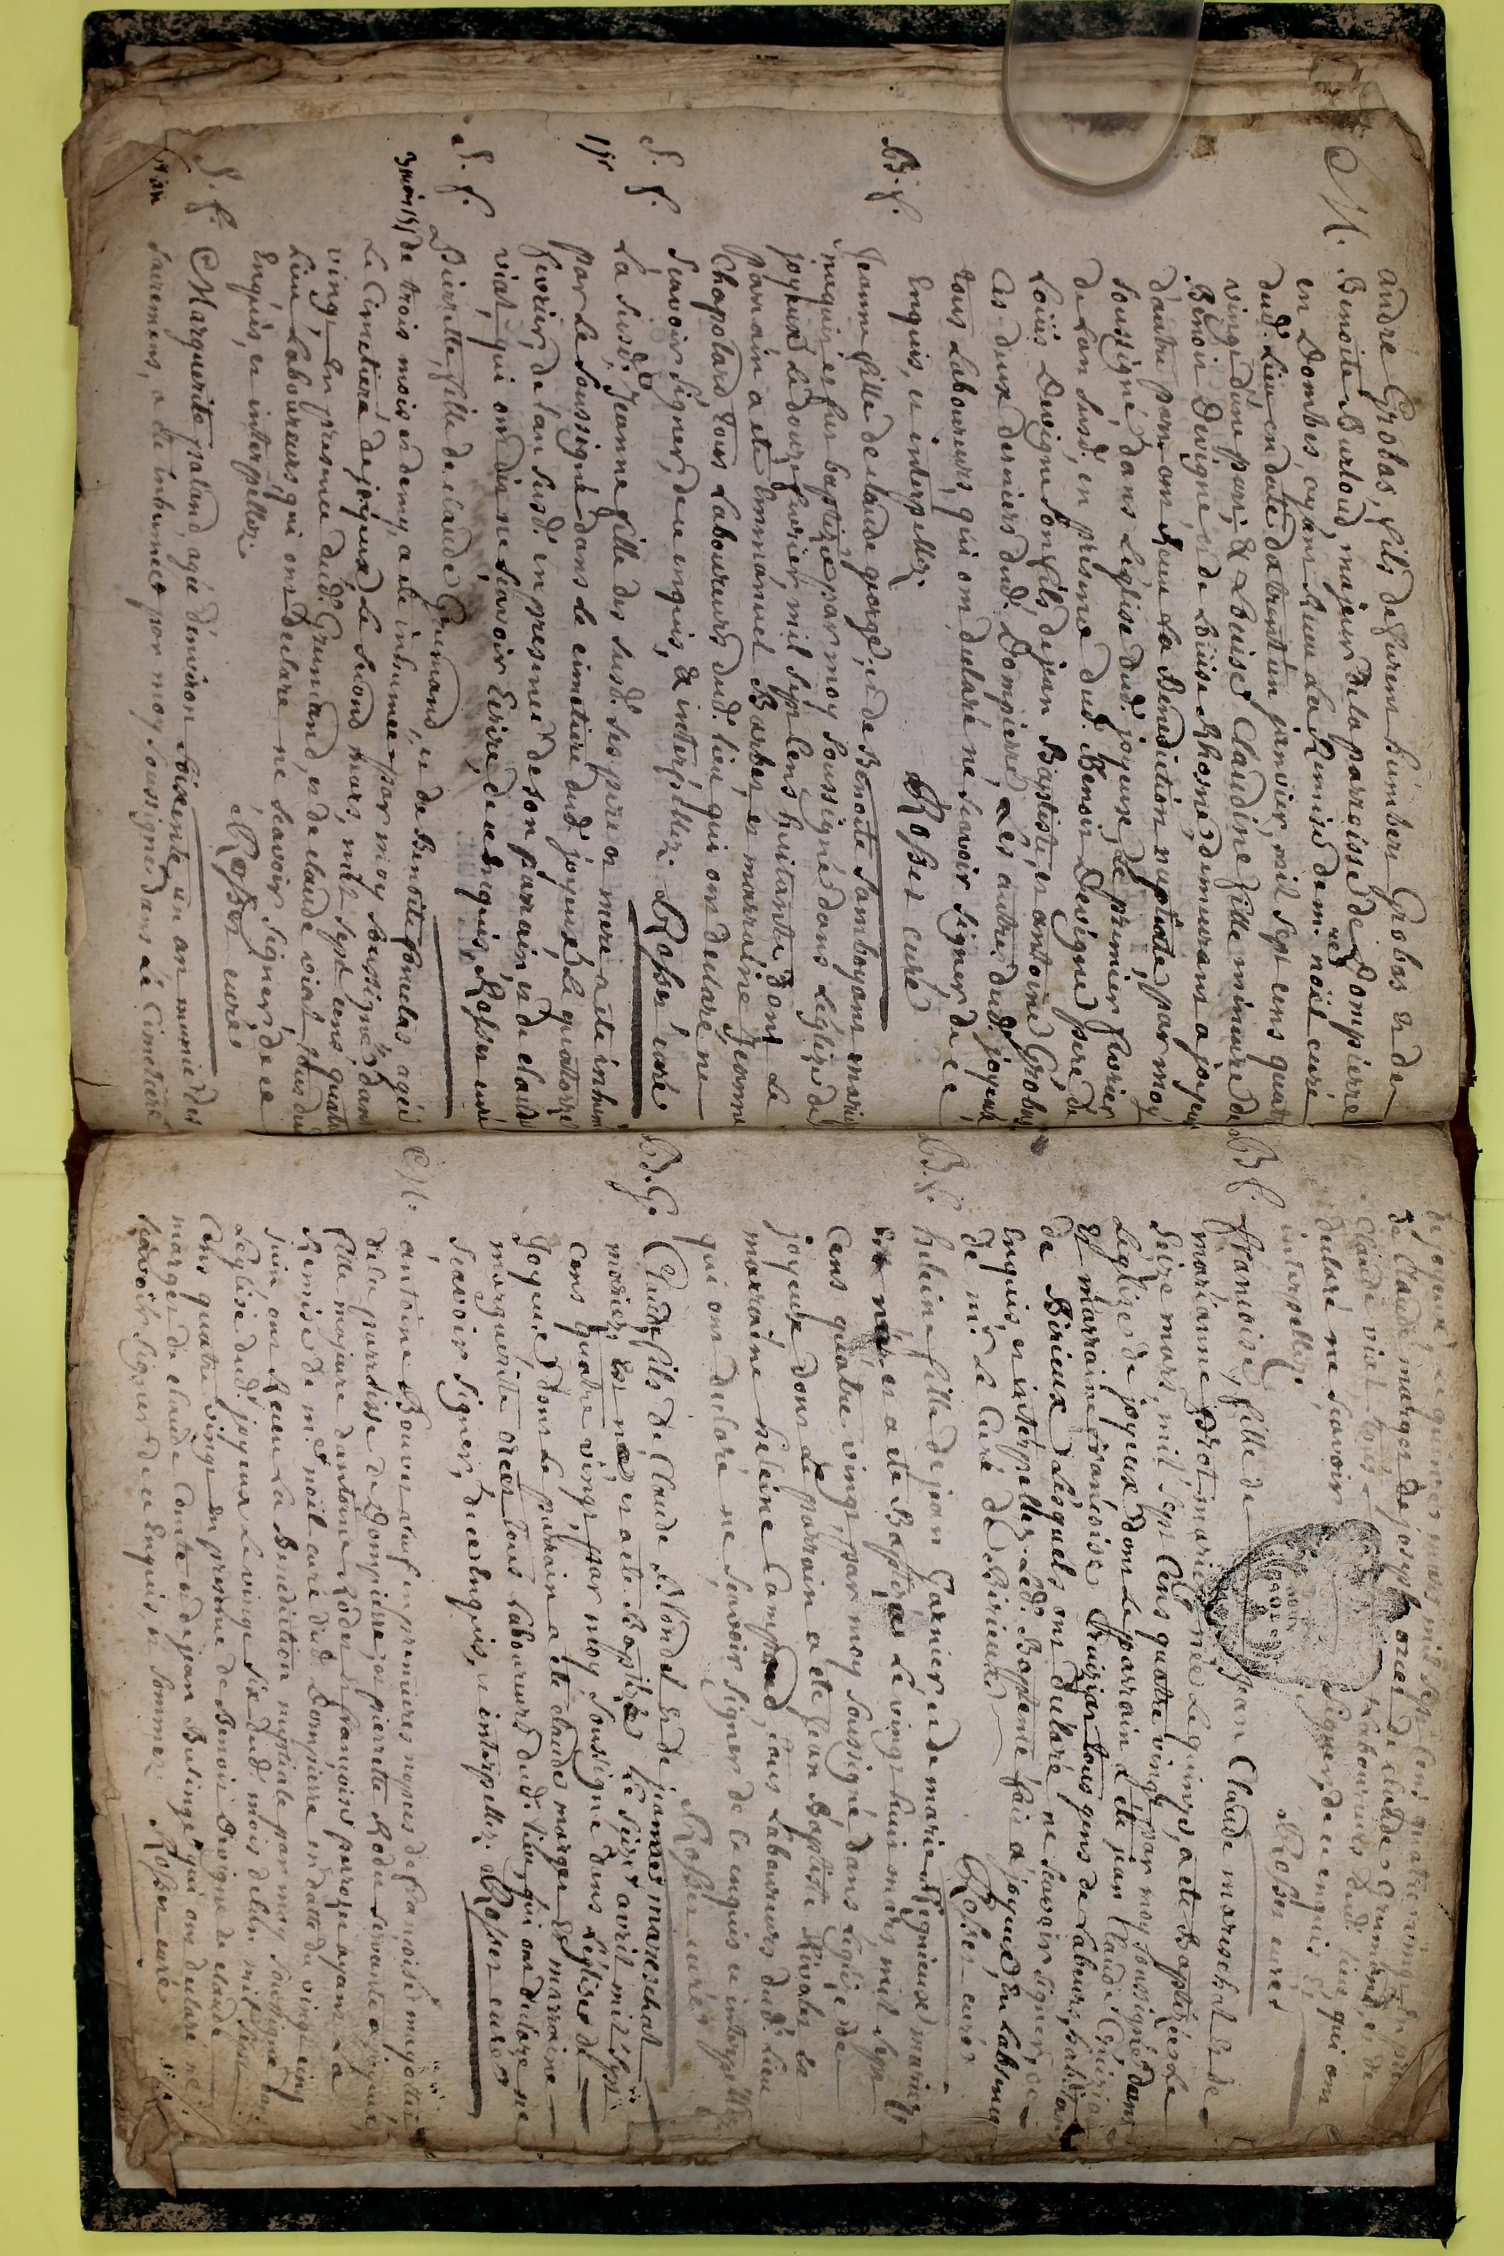 M.
andre Grobas, fils de furent humbert Grobas et de
Benoite Burtoud, majeur de la parroisse de Dompierre
en Dombes, ayant Receu la Remise de mre noel curé
dud. Lieu en datte du trent un janvier, mil sept cens quatre
vingt d'une part; & Louise Claudine fille mineure de
Benoit Devigne et de Loüise Rhosne demeurans a joyeux
d'autre part ont Receu La Benediction nuptiale par moy
soussigné dans L'eglise dud. joyeux, Le premier fevrier
de L'an susd. en presence dud. Benoit Devigne pere de
Loüis Devigne son fils de jean Baptiste, et antoine Grobas
Ces deux derniers dud. Dompierre, Les autres dud. joyeux
tous Laboureurs, qui ont declaré ne scavoir signer de ce
Enquis, et interpellez.
Rosier curé
B. f.
Jeanne fille de claude george, et de Benoite Lamboyant mariés
naquit et fut baptizée par moy soussigné dans L'eglize de
joyeux Le douze fevrier, mil sept cens huitante dont Le
parrain a eté Emmanuel Barbet et marraine Jeanne
Chapolard tous Laboureurs dud. lieu, qui ont declaré ne
scavoir signer, de ce enquis, & interpellez. Rosier curé
S. f.
La susd. Jeanne fille des susd. ses pere et mere a eté inhumée
par Le soussigné dans le cimetiere dud. joyeux Le quattorze
fevrier, de l'an susd. en presence de son parrain, et de claude
viat, qui ont dit ne scavoir Ecrire, de ce Enquis, Rosier curé
S. f.
3 mois 1/2
Pierrette, fille de claude Grumand, et de Benoite, agée
de trois mois et demy, a eté inhumée par moy soussigné dans
Le Cimetiere de joyeux Le second mars, mil sept cens quatre
vingt En presence dud. Grumand, et de claude viat tous dud.
Lieu Laboureurs qui ont declaré ne scavoir signer, de ce
Enquis, et interpellez.
Rosier curé
S. f.
Marguerite paland, agée d'environ soixante un an munie des
sacremens, a eté inhumée par moy soussigné dans Le Cimetiere
de joyeux Le quinze mars mil sept cens quatre vingt En presence
de claude marger de joseph oriel de claude Grumand et de
Claude viat tous Laboureurs dud. lieu, qui ont
declaré ne scavoir signer, de ce enquis &
interpellez.
Rosier curé
B. f.
francoise, fille de jean Claude mareschal et de
marianne Brot mariés née Le quinze, a eté Baptizée Le
seize mars, mil sept Cens quatre vingt par moy soussigné dans
L'eglize de joyeux dont Le parrain a eté jean Claude
et marraine francoise tous gens de Labeur, habitans
de Birieux Lesquels ont declaré ne scavoir signer, de ce
Enquis, et interpellez. Led. Baptême fait a joyeux En L'absence
de mr. Le Curé de Birieux
Rosier curé
B. f.
heleine fille de jean Garnier et de marie Signieux mariés
est née et a eté Baptizée Le vingt huit mars, mil sept
Cens quatre vingt, par moy soussigné dans L'eglize de
joyeux dont Le parrain a eté jean Baptiste Rivoles La
marraine heleine tous Laboureurs dud. lieu
qui ont declaré ne scavoir signer de ce enquis et interpellez
Rosier curé
B. G.
Claude fils de Claude Blondel et de jeanne mareschal
mariez Est né et a eté Baptizé Le seize avril mil sept
cens quatre vingt, par moy soussigné dans L'eglise de
joyeux dont Le parrain a eté claude marger & marraine
marguerite oriel tous Laboureurs dud. lieu, qui ont declaré ne
scavoir signer, de ce Enquis, et interpellez. Rosier curé
M.
antoine Bouvet veuf en premieres nopces de francoise
de la parroisse de Dompierre, et pierrette Rodet servante a joyeux
fille majeure d'antoine Rodet et francoise ayant La
Remise de mr. noël curé dud. Dompierre en datte du vingt cinq
juin ont Receu La Benediction nuptiale par moy soussigné dans
L'eglise dud. joyeux Le vingt six dud. mois de l'an mil sept
Cens quatre vingt En presence de Benoit Devigne de claude
marger de claude Comte et de jean Bulinge qui ont declaré ne
scavoir signer de ce Enquis, et sommez. Rosier curé